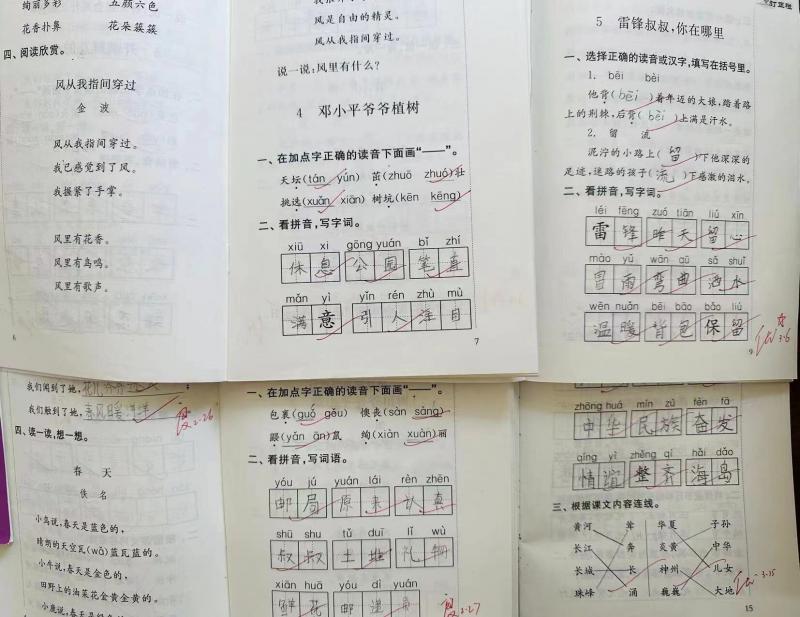 绚丽多彩 五颜六色
花香扑鼻 花朵簇簇
四、阅读欣赏。
风从我指间穿过
金 波
风从我指间穿过。
我已感觉到了风。
我握紧了手掌。
风里有花香。
风里有鸟鸣。
风里有歌声。
6
风是自由的精灵。
说一说:风里有什么?
4 邓小平爷爷植树
一、在加点字正确的读音下面画“——”。
天坛(tán yún) 茁(zhuō zhuó)壮
挑选(xuǎn xiān) 树坑(kēn kēng)
二、看拼音,写字词。
xiū xi gōng yuán bǐ zhí
休息 公园 笔直
mǎn yì yǐn rén zhù mù
满意 引人注目
7
5 雷锋叔叔,你在哪里
一、选择正确的读音或汉字,填写在括号里。
1. bēi bèi
他背(bēi)着年迈的大娘,踏着路
上的荆棘,后背(bèi)上满是汗水。
2. 留 流
泥泞的小路上(留)下他深深的
足迹,迷路的孩子(流)下感激的泪水。
二、看拼音,写字词。
léi fēng zuó tiān liú xīn
雷锋 昨天 留心
mào yǔ wān qū sǎ shuǐ
冒雨 弯曲 洒水
wēn nuǎn bēi bāo bǎo liú
温暖 背包 保留
9
3.6
我们闻到了她,
我们触到了她,春风暖洋洋
2.26
四、读一读,想一想。
春 天
佚 名
小鸟说,春天是蓝色的,
晴朗的天空瓦(wǎ)蓝瓦蓝的。
小牛说,春天是金色的,
田野上的油菜花金黄金黄的。
小鹿说,春天是
一、在加点字正确的读音下面画“——”。
包裹(guǒ gǒu) 懊丧(sàn sàng)
鼹(yǎn ān)鼠 绚(xiàn xuàn)丽
二、看拼音,写词语。
yóu jú yuán lái rèn zhēn
邮局 原来 认真
shū shu tǔ duī lǐ wù
叔叔 土堆 礼物
xiān huā yóu dì yuán
鲜花 邮递员
2.27
zhōng huá mín zú fèn fā
中华 民族 奋发
qíng yì zhěng qí hǎi dǎo
情谊 整齐 海岛
三、根据课文内容连线。
黄河 耸 华夏 子孙
长江 奔 炎黄 中华
长城 长 神州 儿女
珠峰 涌 巍巍 大地
3.15
15